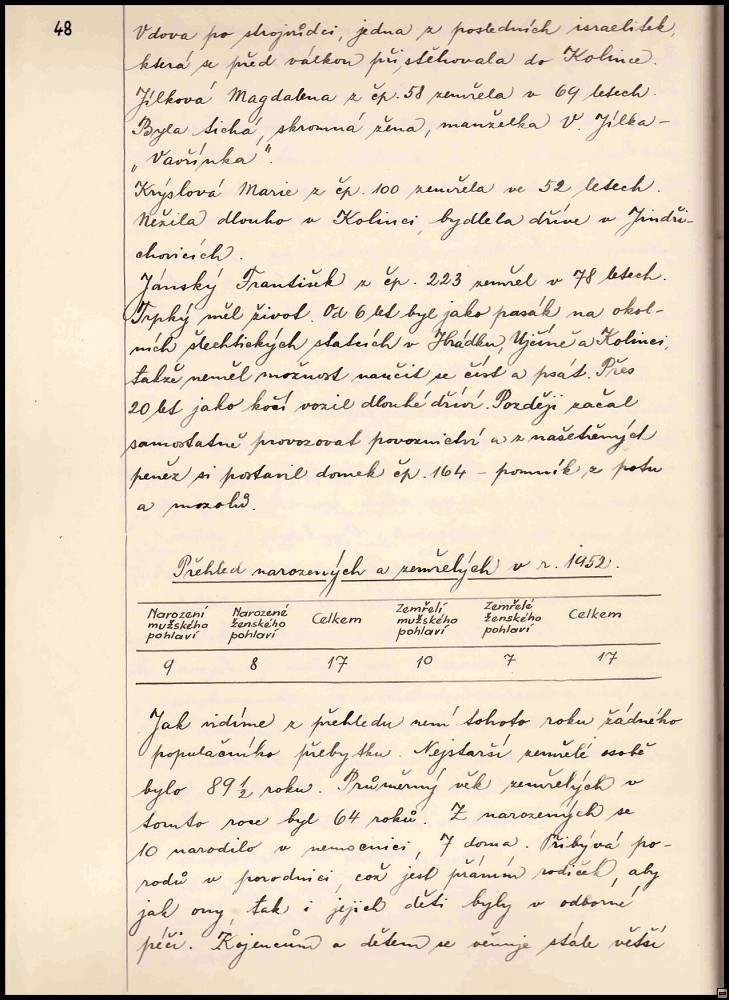 48
Vdova po strojvůdci, jedna z posledních israelitek,
která se před válkou přistěhovala do Kolince.
Jílková Magdalena z čp. 58 zemřela v 69 letech.
Byla tichá, skromná žena, manželka V. Jílka -
„Vavřínka“.
Krýslová Marie z čp. 100 zemřela ve 52 letech.
Nežila dlouho v Kolinci, bydlela dříve v Jindři-
chovicích.
Jánský František z čp. 223 zemřel v 78 letech.
Trpký měl život. Od 6 let byl jako pasák na okol-
ních šlechtických statcích v Hrádku, Ujčíně a Kolinci,
takže neměl možnost naučit se číst a psát. Přes
20 let jako kočí vozil dlouhé dříví. Později začal
samostatně provozovat povoznictví a z našetřených
peněz si postavil domek čp. 164 - pomník z potu
a mozolů.
Přehled narozených a zemřelých v r. 1952.
Narození mužského pohlaví Narozené ženského pohlaví Celkem Zemřelí mužského pohlaví Zemřelé ženského pohlaví Celkem
9 8 17 10 7 17
Jak vidíme z přehledu není tohoto roku žádného
populačního přebytku. Nejstarší zemřelé osobě
bylo 89 1/2 roku. Průměrný věk zemřelých v
tomto roce byl 64 roků. Z narozených se
10 narodilo v nemocnici, 7 doma. Přibývá po-
rodů v porodnici, což jest přáním rodiček, aby
jak ony, tak i jejich děti byly v odborné
péči. Kojencům a dětem se věnuje stále větší